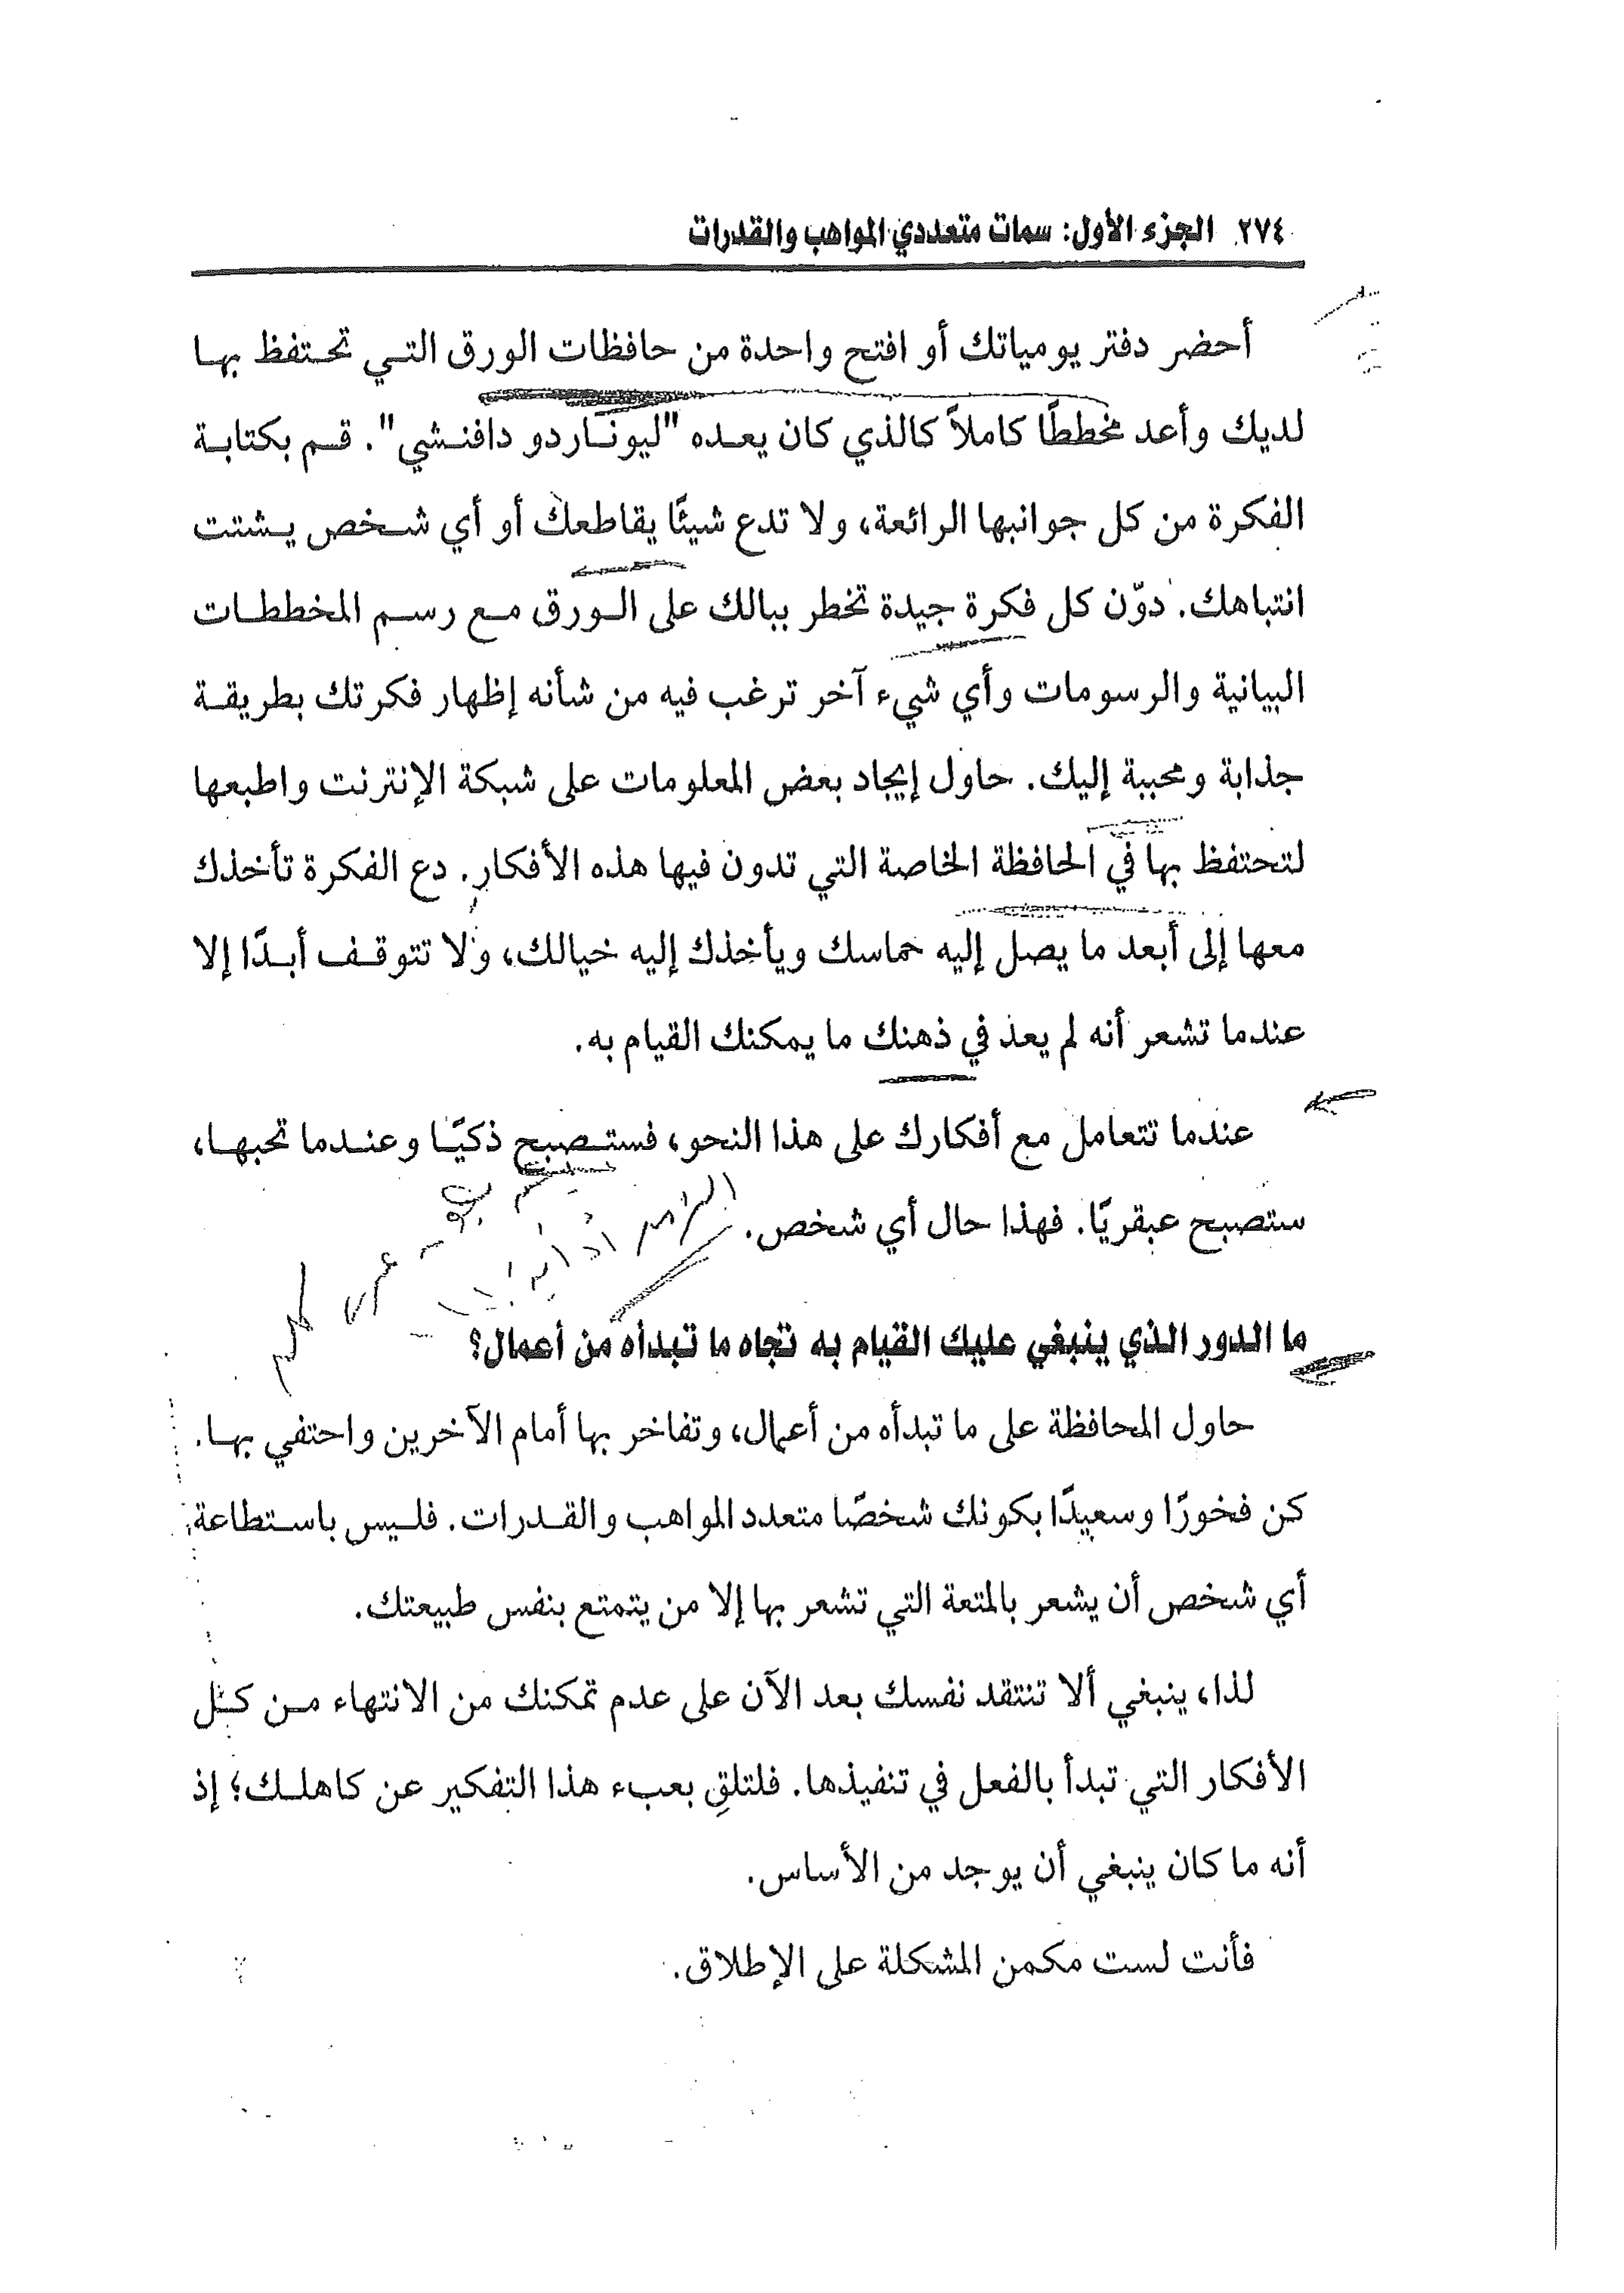 ٢٧٤ الجزء الأول: سمات متعددي المواهب والقدرات
أحضر دفتر يومياتك أو افتح واحدة من حافظات الورق التي تحتفظ بها
لديك وأعد مخططًا كاملاً كالذي كان يعده "ليوناردو دافنشي". قم بكتابة
الفكرة من كل جوانبها الرائعة، ولا تدع شيئًا يقاطعك أو أي شخص يشتت
انتباهك. دوّن كل فكرة جيدة تخطر ببالك على الورق مع رسم المخططات
البيانية والرسومات وأي شيء آخر ترغب فيه من شأنه إظهار فكرتك بطريقة
جذابة ومحببة إليك. حاول إيجاد بعض المعلومات على شبكة الإنترنت واطبعها
لتحتفظ بها في الحافظة الخاصة التي تدون فيها هذه الأفكار. دع الفكرة تأخذك
معها إلى أبعد ما يصل إليه حماسك ويأخذك إليه خيالك، ولا تتوقف أبدًا إلا
عندما تشعر أنه لم يعد في ذهنك ما يمكنك القيام به.
عندما تتعامل مع أفكارك على هذا النحو، فستصبح ذكيًا وعندما تحبها،
ستصبح عبقريًا. فهذا حال أي شخص.
ما الدور الذي ينبغي عليك القيام به تجاه ما تبدأه من أعمال؟
حاول المحافظة على ما تبدأه من أعمال، وتفاخر بها أمام الآخرين واحتفي بها.
كن فخورًا وسعيدًا بكونك شخصًا متعدد المواهب والقدرات. فليس باستطاعة
أي شخص أن يشعر بالمتعة التي تشعر بها إلا من يتمتع بنفس طبيعتك.
لذا، ينبغي ألا تنتقد نفسك بعد الآن على عدم تمكنك من الانتهاء من كل
الأفكار التي تبدأ بالفعل في تنفيذها. فلتلقِ بعبء هذا التفكير عن كاهلك؛ إذ
أنه ما كان ينبغي أن يوجد من الأساس.
فأنت لست مكمن المشكلة على الإطلاق.